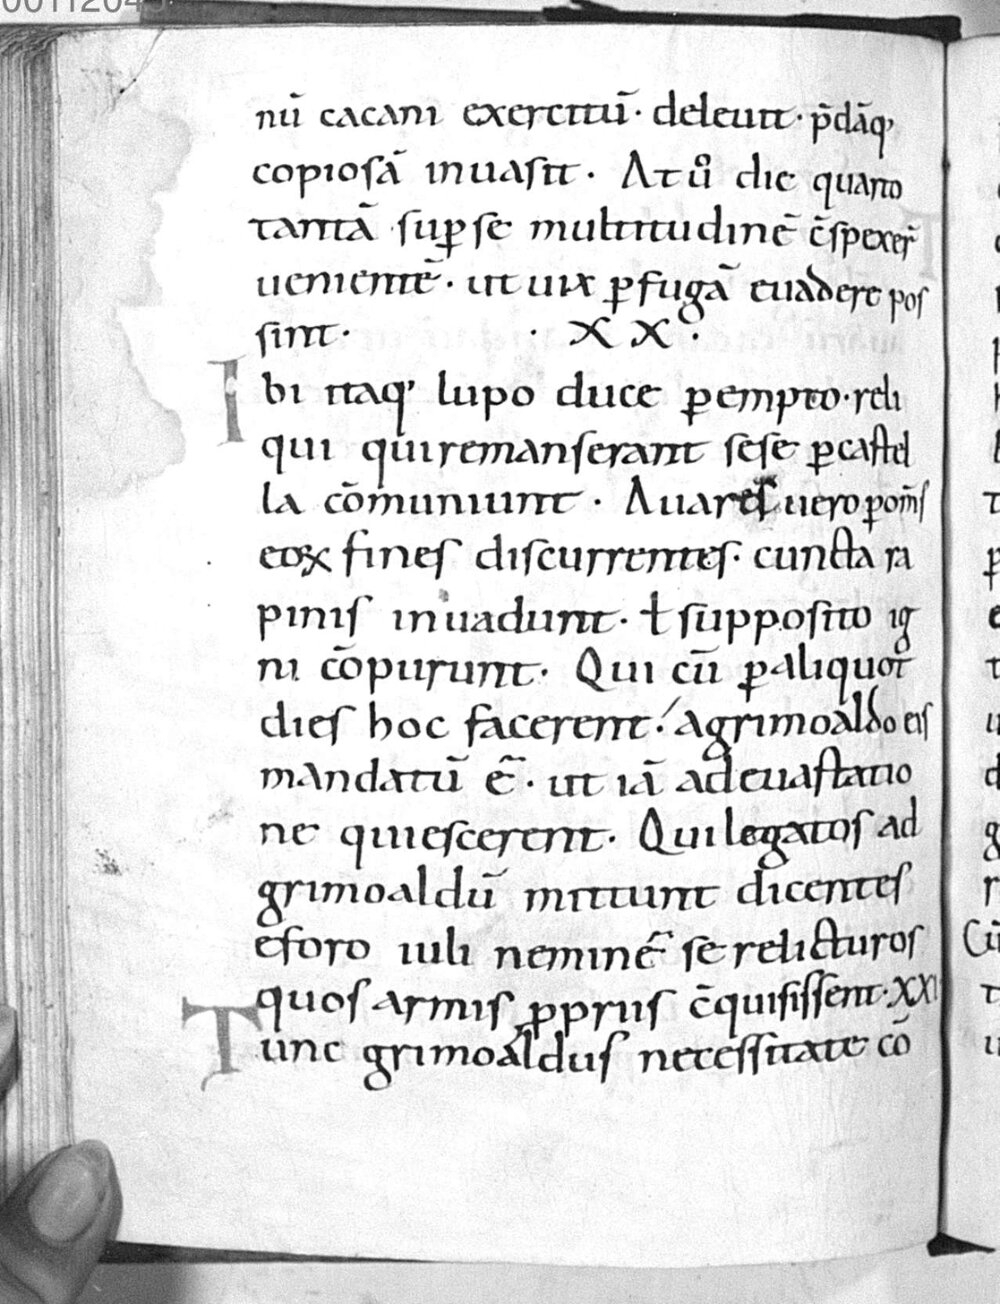 nū cacani exercitū· deleuit· p̄dāq;
copiosā inuasit· At ů die quarto
tantā sup̱ se multitudinē c̄spexer̄
uenientē· ut uix p̱ fugā euadere pos
sint· · XX·
Ibi itaq; lupo duce perempto· reli
qui qui remanserant sese p̱ castel
la cōmuniunt· Auares uero p̱ om̄s
eoꝝ fines discurrentes· cuncta ra
pinis inuadunt· ł supposito ig
ni cōpurunt· Qui cū p̱ aliquot
dies hoc facerent· a grimoaldo eis
mandatū ē· ut iā a deuastatio
ne quiescerent· Qui legatos ad
grimoaldū mittunt dicentes
eforo iuli neminē se relicturos
quos armis ꝓpriis c̄quisissent· XXI
Tunc grimoaldus necessitate cō